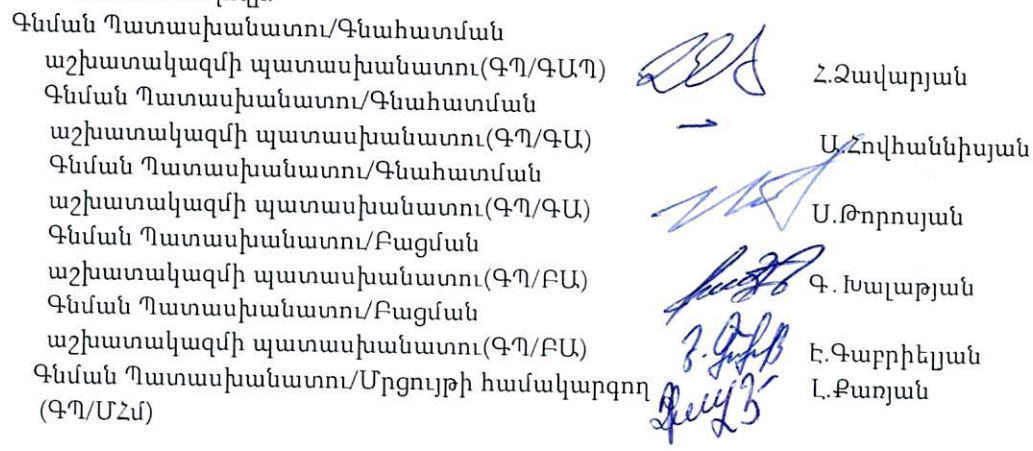 Գնման Պատասխանատու/Գնահատման
աշխատակազմի պատասխանատու(ԳՊ/ԳԱՊ) Հ.Զավարյան
Գնման Պատասխանատու/Գնահատման
աշխատակազմի պատասխանատու(ԳՊ/ԳԱ) Ա.Հովհաննիսյան
Գնման Պատասխանատու/Գնահատման
աշխատակազմի պատասխանատու(ԳՊ/ԳԱ) Ս.Թորոսյան
Գնման Պատասխանատու/Բացման
աշխատակազմի պատասխանատու(ԳՊ/ԲԱ) Գ.Խալաթյան
Գնման Պատասխանատու/Բացման
աշխատակազմի պատասխանատու(ԳՊ/ԲԱ) Է.Գաբրիելյան
Գնման Պատասխանատու/Մրցույթի համակարգող Լ.Քառյան
(ԳՊ/ՄՀմ)